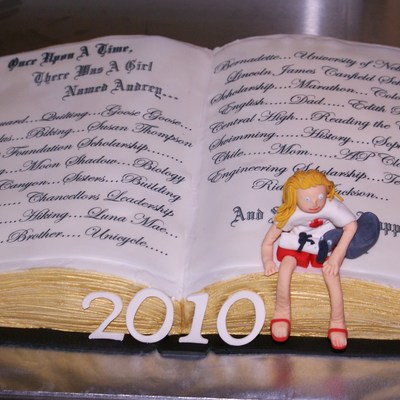 Once Upon A Time,
There Was A Girl
Named Audrey...
Quilting...Goose Goose...
Biking...Susan Thompson
Foundation Scholarship......
Moon Shadow...Biology
Canyon...Sisters...Building
Chanters Leadership
Hiking...Luna Mae...
Brother....Unicycle.....
Bernadette...University of
Lincoln James Canfield
Scholarship....Marathon...
English....Dad....Edith
Central High...Reading the
Swimming.....History....
Chile....Mom....AP
Engineering Scholarship...
And
2010